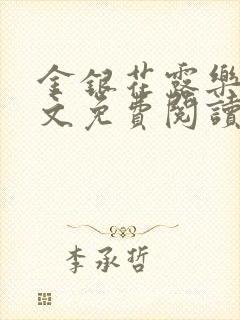 金銀花露樂
文免費閱讀
李承哲